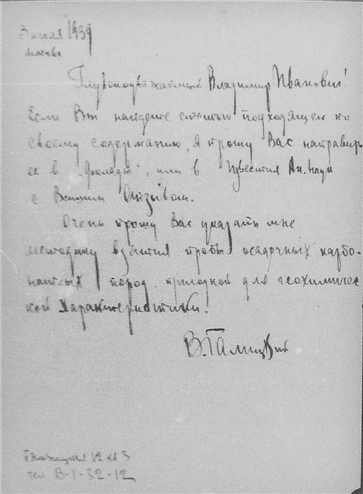 3 июля 1939
Москва
Глубокоуважаемый Владимир Иванович!
Если Вы найдете статью подходящей по
своему содержанию, я прошу Вас направить
ее в "Доклады" или в Известия Ак. Наук
с Вашим Отзывом.
Очень прошу Вас указать мне
методику взятия пробы осадочных карбо-
натных пород, пригодной для геохимичес-
кой характеристики.
12 кв 3
тел. В-1-32-12